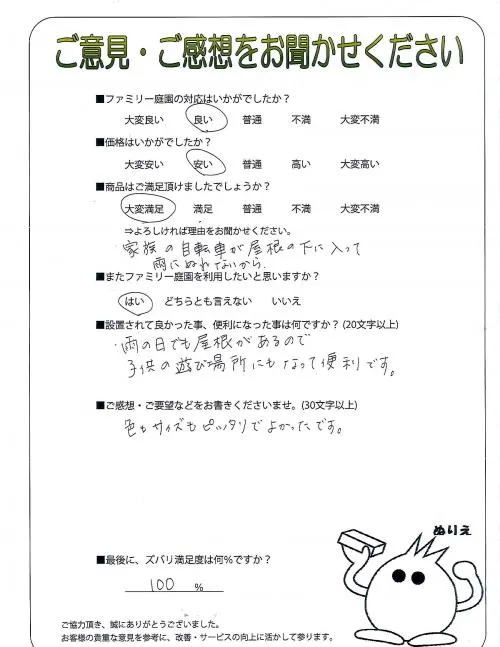 ご意見・ご感想をお聞かせください
■ファミリー庭園の対応はいかがでしたか?
大変良い 良い 普通 不満 大変不満
■価格はいかがでしたか?
大変安い 安い 普通 高い 大変高い
■商品はご満足頂けましたでしょうか?
大変満足 満足 普通 不満 大変不満
⇒よろしければ理由をお聞かせください。
家族の自転車が屋根の下に入って
雨にぬれないから.
■またファミリー庭園を利用したいと思いますか?
はい どちらとも言えない いいえ
■設置されて良かった事、便利になった事は何ですか? (20文字以上)
雨の日でも屋根があるので
子供の遊び場所にもなって便利です。
■ご感想・ご要望などをお書きくださいませ。(30文字以上)
色もサイズもピッタリでよかったです。
ぬりえ
■最後に、ズバリ満足度は何%ですか?
100 %
ご協力頂き、誠にありがとうございました。
お客様の貴重な意見を参考に、改善・サービスの向上に活かして参ります。